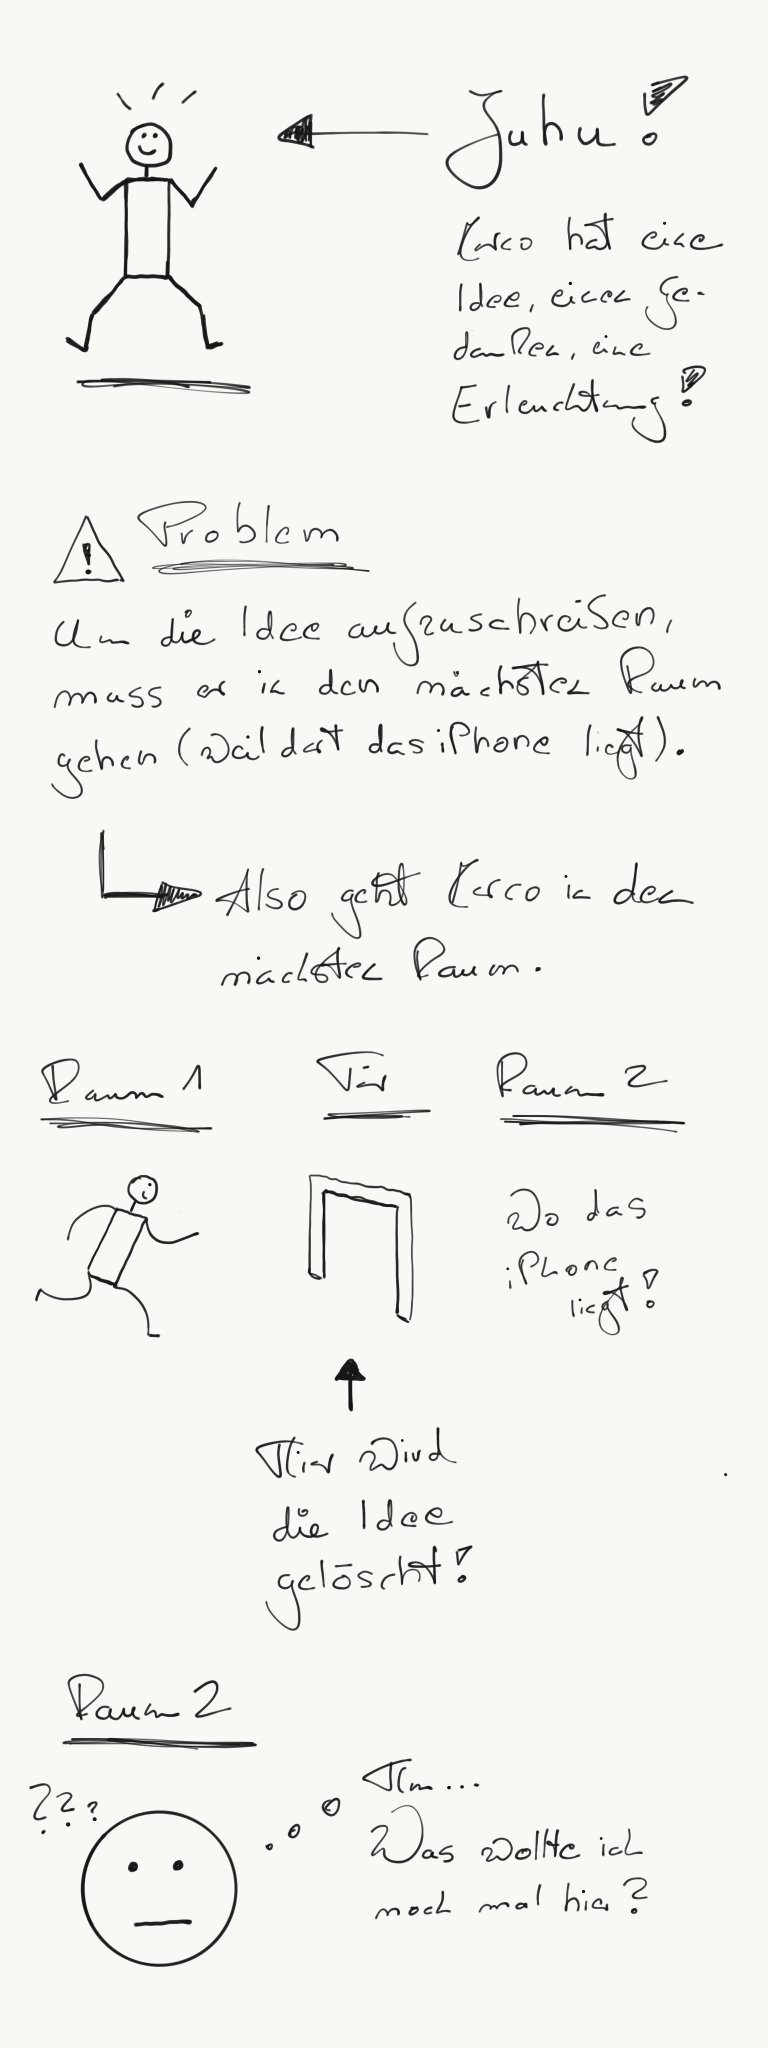 Juhu!
Karco hat eine
Idee, einen Ge-
danken, eine
Erleuchtung!
! Problem
Um die Idee aufzuschreiben,
muss er in den nächsten Raum
gehen (weil dort das iPhone liegt).
Also geht Karco in den
nächsten Raum.
Raum 1 Tür Raum 2
Wo das
iPhone
liegt!
Hier wird
die Idee
gelöscht!
Raum 2
???
Hm...
Was wollte ich
noch mal hier?